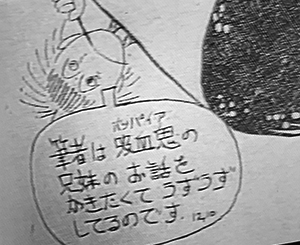 バンパイア
筆者は 吸血鬼の
兄妹の お話を
かきたくて うずうず
してるのです. 12,10